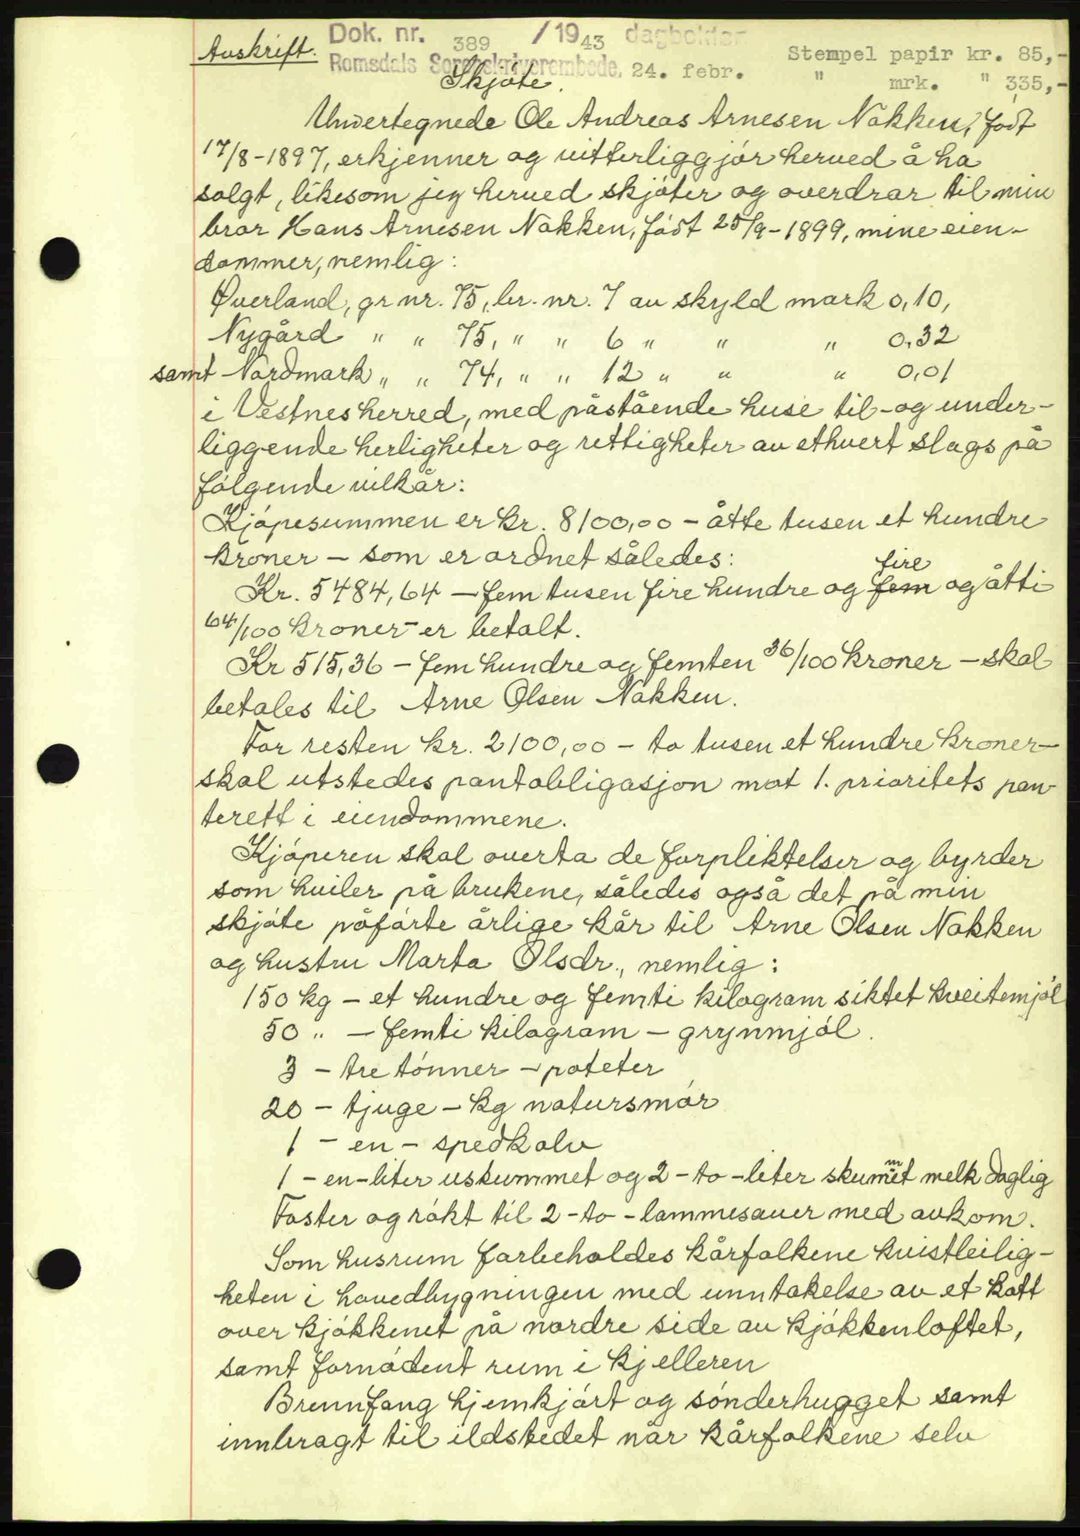 Avskrift.
Dok. nr. 389 / 1943 dagboktet
Stempel papir kr. 85,-
Romsdals Sorenskriverembede, 24. febr.
" mrk. " 335,-
Skjøte.
Undertegnede Ole Andreas Arnesen Nakken, født
17/8-1897, erkjenner og vitterliggjør herved å ha
solgt, likesom jeg herved skjøter og overdrar til min
bror Hans Arnesen Nakken, født 25/9-1899, mine eien-
dommer, nemlig:
Øverland, gr. nr. 75, br. nr. 7 av skyld mark 0,10,
Nygård " " 75, " " 6 " " " 0,32
samt Nordmark " " 74, " " 12 " " " 0,01
i Vestnes herred, med påstående huse til- og under-
liggende herligheter og rettigheter av ethvert slags på
følgende vilkår:
Kjøpesummen er kr. 8100,00 - åtte tusen et hundre
kroner - som er ordnet således:
Kr. 5484,64 - fem tusen fire hundre og fem fire og åtti
64/100 kroner - er betalt.
Kr 515,36 - fem hundre og femten 36/100 kroner - skal
betales til Arne Olsen Nakken.
For resten kr. 2100,00 - to tusen et hundre kroner -
skal utstedes pantobligasjon mot 1. prioritets pan-
terett i eiendommene.
Kjøperen skal overta de forpliktelser og byrder
som hviler på brukene, således også det på min
skjøte påførte årlige kår til Arne Olsen Nakken
og hustru Marta Olsdr., nemlig:
150 kg - et hundre og femti kilogram siktet kveitemjøl
50 " - femti kilogram - grynmjøl.
3 - tre tønner - poteter
20 - tjuge - kg natursmør
1 - en - spedkalv
1 - en - liter uskummet og 2 - to - liter skummet melk daglig
Foster og røkt til 2 - to - lammesauer med avkom.
Som husrum forbeholdes kårfolkene kvistleilig-
heten i hovedbygningen med unntakelse av et kott
over kjøkkenet på nordre side av kjøkkenloftet,
samt fornødent rum i kjelleren
Brennfang hjemkjørt og sønderhugget samt
innbragt til ildstedet når kårfolkene selv